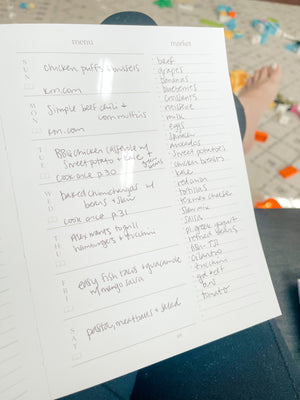 menu
SUN
chicken puffs + brussels
km.com
MON
Simple beef chili +
corn muffins
km.com
TUE
BBQ chicken casserole w/
sweet potato + kale +
green beans
cook once p.30
WED
baked chimichangas w/
beans + slaw
cook once p.31
THU
Alex wants to grill
hamburgers + zucchini
FRI
easy fish tacos + guacamole
w/ mango salsa
SAT
pasta, meatballs + salad
market
beef
grapes
bananas
blueberries
croissants
milk
eggs
spinach
avocados
sweet potatoes
chicken breasts
kale
red onion
tortillas
tex mex cheese
slaw mix
salsa
pl. greek yogurt
refried beans
cilantro
zucchini
buns
tomato